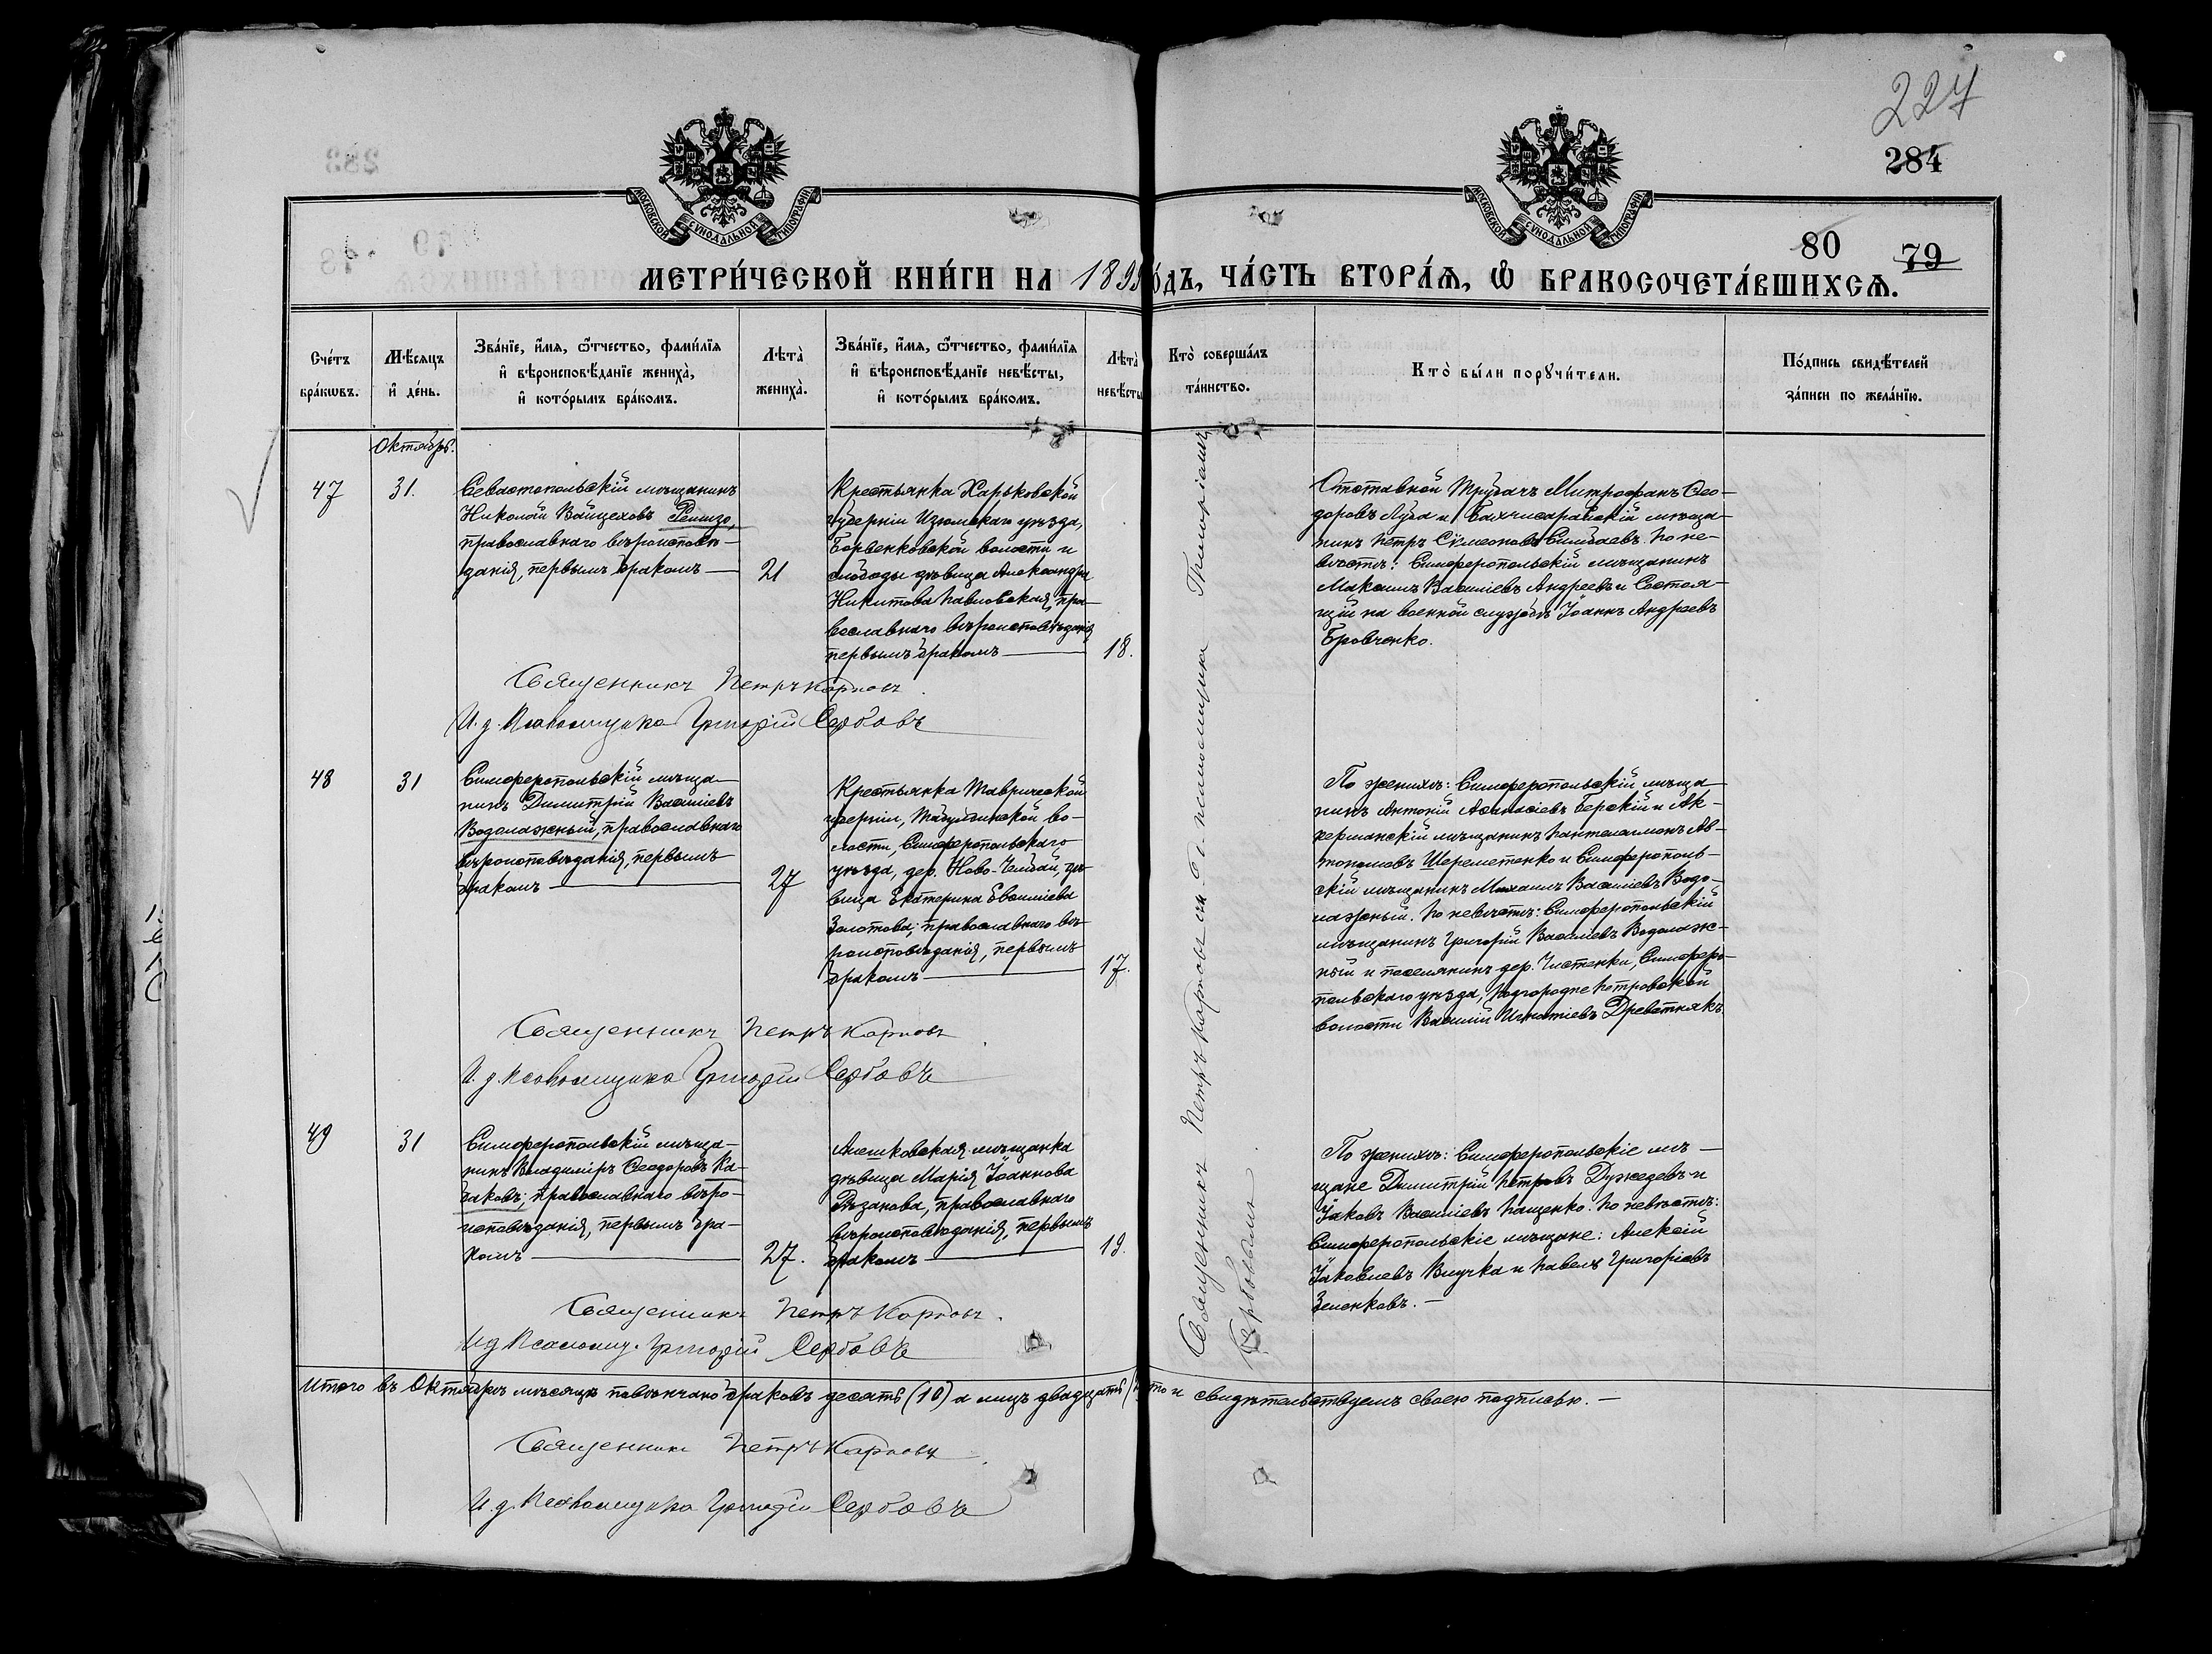 227
284
МОСКОВСКОЙ СѴНОДАЛЬНОЙ ТИПОГРАФІИ
МОСКОВСКОЙ СѴНОДАЛЬНОЙ ТИПОГРАФІИ
80 79
МЕТРИ́ЧЕСКОЙ КНИ́ГИ НА 1899 ГО́ДЪ, ЧА́СТЬ ВТОРА́Ѧ, Ѽ БРАКОСОЧЕТА́ВШИХСѦ.
Сче́тъ бра́кѡвъ.
Мѣ́сѧцъ и҆ де́нь.
Зва́нїе, и҆́мѧ, ѻ҆́тчество, фами́лїѧ и҆ вѣроисповѣ́данїе жениха̀, и҆ кото́рымъ бра́комъ.
Лѣта̀ жениха̀.
Зва́нїе, и҆́мѧ, ѻ҆́тчество, фами́лїѧ и҆ вѣроисповѣ́данїе невѣ́сты, и҆ кото́рымъ бра́комъ.
Лѣта̀ невѣ́сты
Кто̀ соверша́лъ та́инство.
Кто̀ бы́ли порꙋчи́тели.
По́дпись свидѣ́телей за́писи по жела́нїю.
Октябрь.
47
31.
Севастопольскій мѣщанинъ
Николай Войцеховъ
православнаго вѣроисповѣ-
данія, первымъ бракомъ —
21
Крестьянка Харьковской
губерніи Изюмскаго уѣзда,
Барвенковской волости и
слободы дѣвица Александра
Никитова Павловская, пра-
вославнаго вѣроисповѣданія,
первымъ бракомъ —
18.
Отставной трубачъ Митрофанъ Ѳео-
доровъ Луга и Бахчисарайскій мѣща-
нинъ Петръ Сѵмеоновъ По не-
вѣстѣ: Симферопольскій мѣщанинъ
Максимъ Василіевъ Андреевъ и Состоя-
щій на военной службѣ Іоаннъ Андреевъ
Бровченко.
Священникъ Петръ Карповъ.
И. д. Псаломщика Григорій Сербовъ
48
31
Симферопольскій мѣща-
нинъ Димитрій Василіевъ
Водолажный, православнаго
вѣроисповѣданія, первымъ
бракомъ —
27
Крестьянка Таврической
губерніи, Табулдинской во-
лости, Симферопольскаго
уѣзда, дер. Ново- дѣ-
вица Екатерина Евѳиміева
Золотова, православнаго вѣ-
роисповѣданія, первымъ
бракомъ —
17.
По женихѣ: Симферопольскій мѣща-
нинъ Антоній Аѳанасіевъ Берскій и Ак-
керманскій мѣщанинъ Пантелеимонъ Ав-
тономовъ Шереметенко и Симферополь-
скій мѣщанинъ Михаилъ Василіевъ Водо-
лажный. По невѣстѣ: Симферопольскій
мѣщанинъ Григорій Василіевъ Водолаж-
ный и поселянинъ дер. Чистенки, Симферо-
польскаго уѣзда, Подгородне Петровской
волости Василій Игнатіевъ Древетнякъ.
Священникъ Петръ Карповъ.
И. д. Псаломщика Григорій Сербовъ
49
31
Симферопольскій мѣща-
нинъ Владиміръ Ѳеодоровъ Ка-
заковъ, православнаго вѣро-
исповѣданія, первымъ бра-
комъ —
27.
Алешковская мѣщанка
дѣвица Марія Іоаннова
Рѣзанова, православнаго
вѣроисповѣданія, первымъ
бракомъ —
19.
По женихѣ: Симферопольскіе мѣ-
щане Димитрій Петровъ и
Іаковъ Василіевъ Пащенко. По невѣстѣ:
Симферопольскіе мѣщане: Алексій
Іаковлевъ и Павелъ Григоріевъ
Зеленковъ. —
Священникъ Петръ Карповъ.
И д Псаломщ. Григорій Сербовъ
Священникъ Петръ Карповъ съ и. д. псаломщика Григоріемъ
Сербовымъ.
Итого въ Октябрѣ мѣсяцѣ повѣнчано браковъ десять (10) а лицъ двадцать что и свидѣтельствуемъ своею подписью. —
Священникъ Петръ Карповъ.
И. д. Псаломщика Григорій Сербовъ